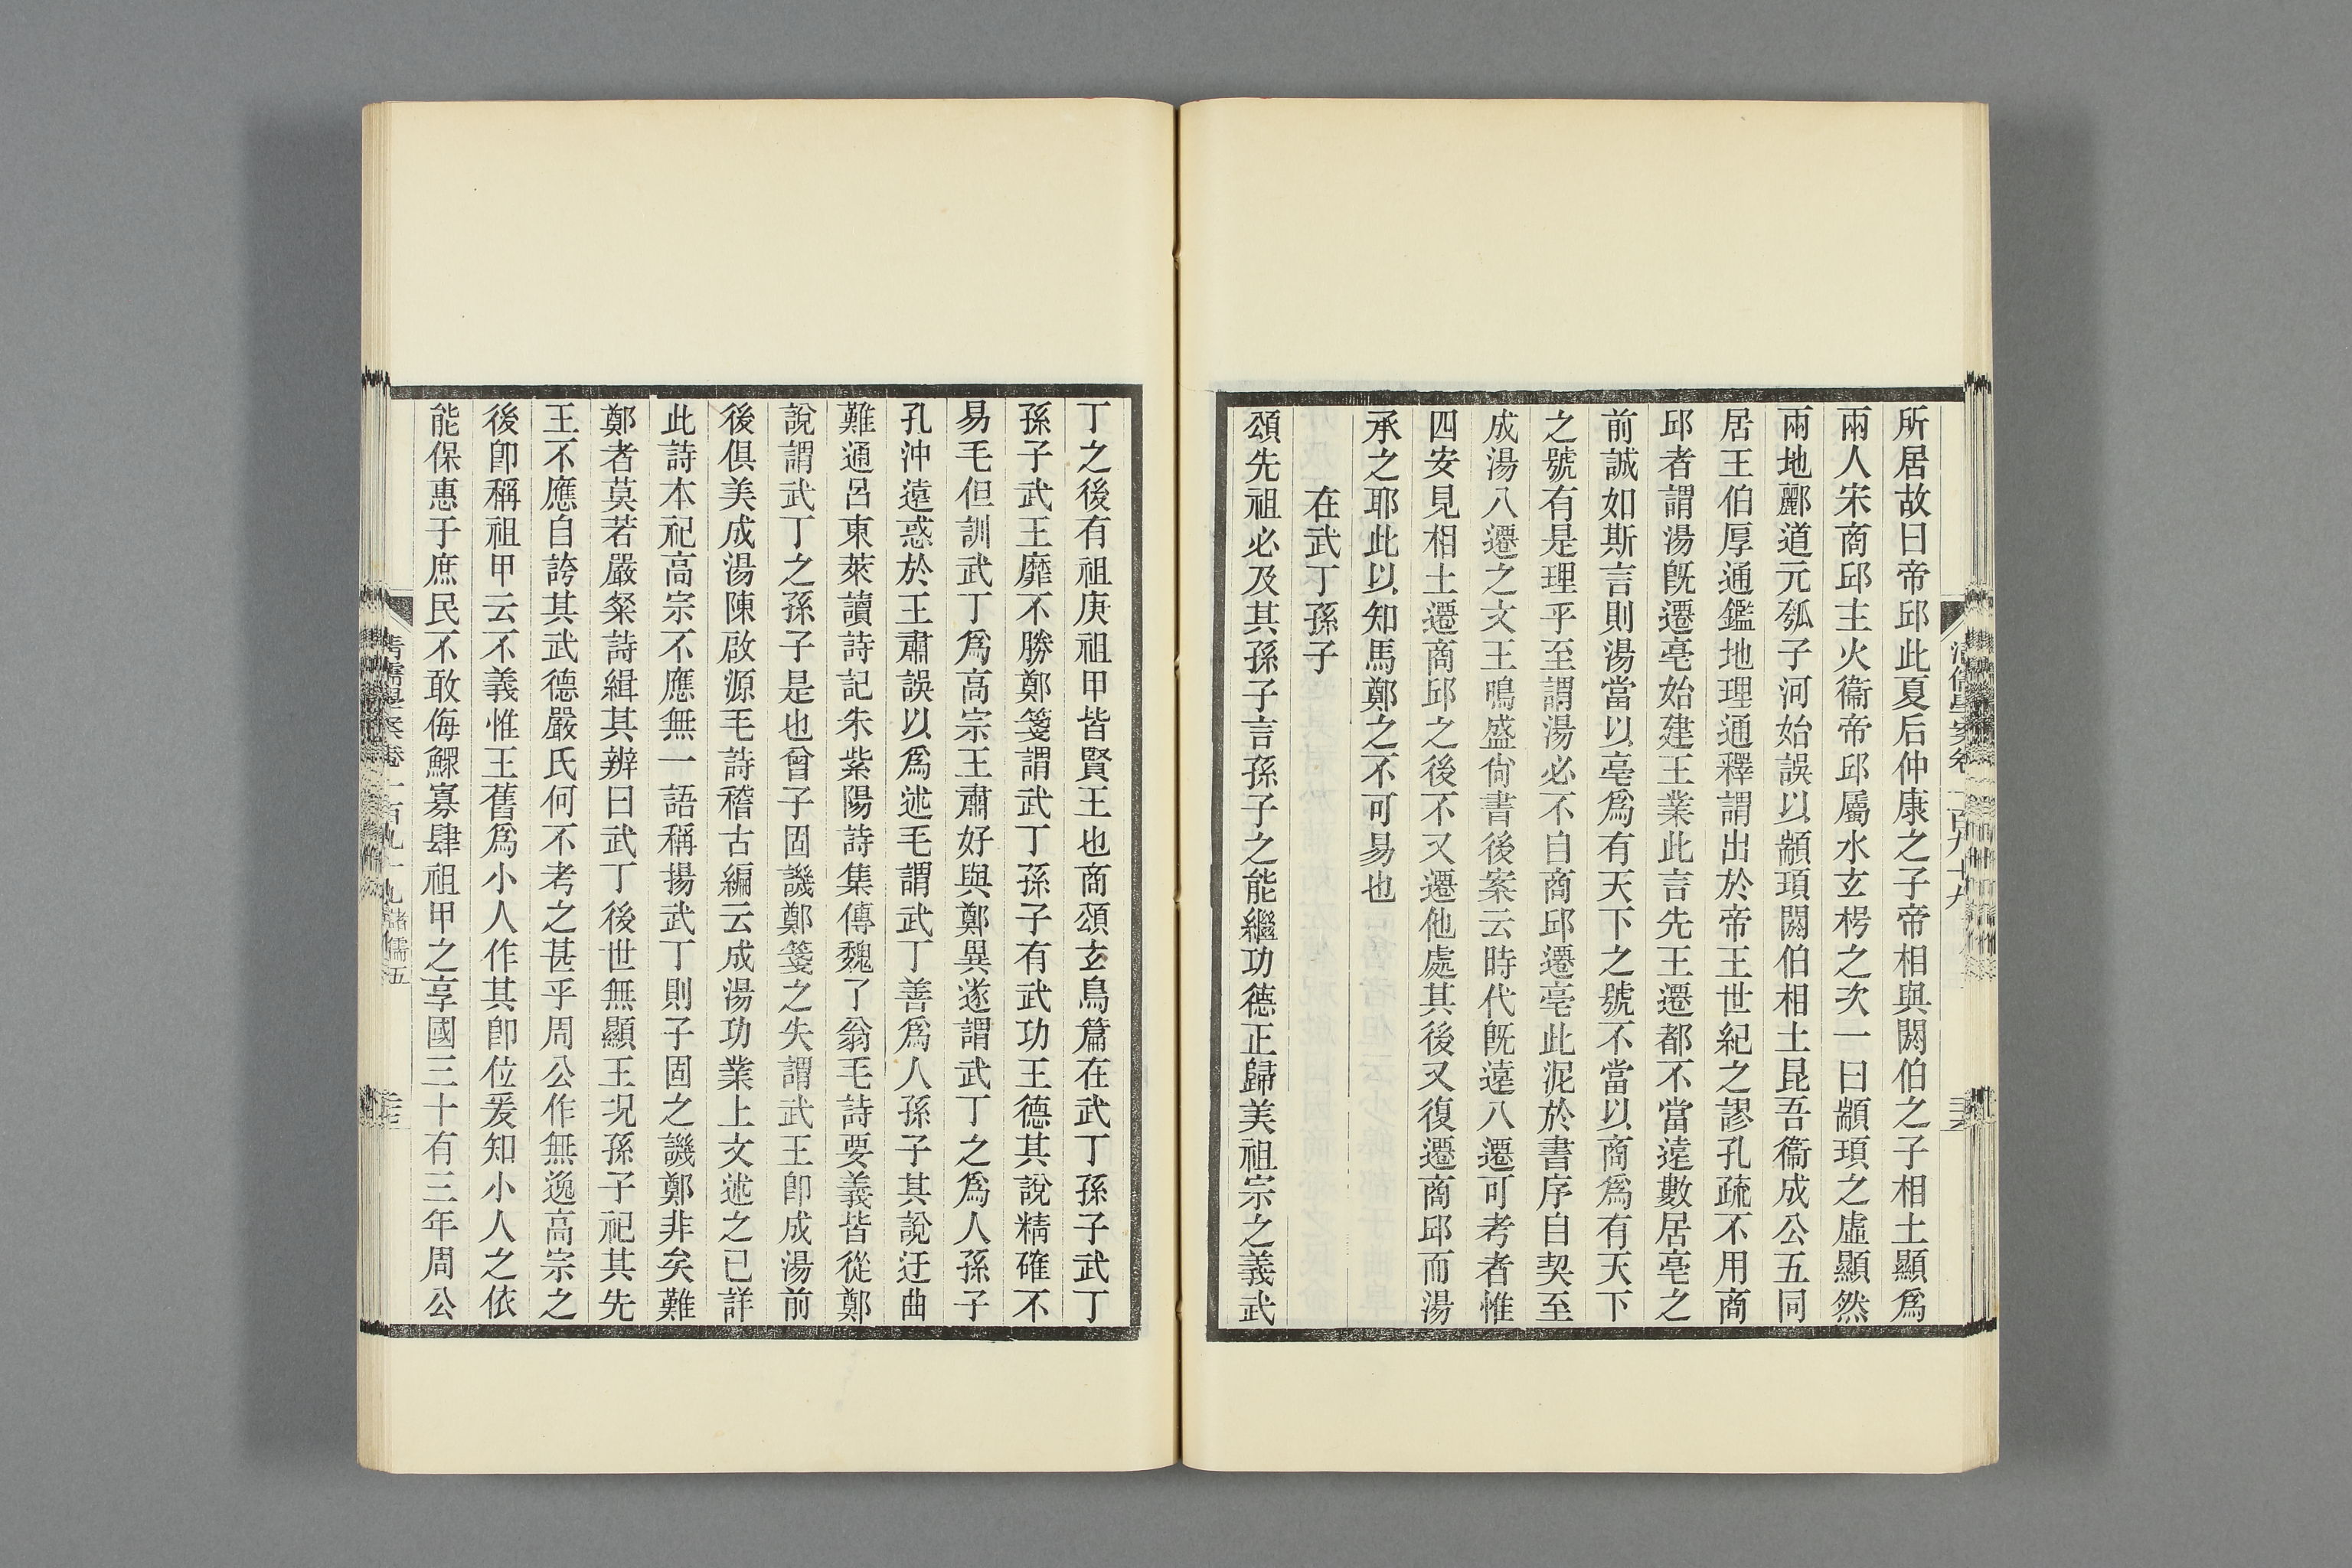 所居故曰帝邱此夏后仲康之子帝相與閼伯之子相土顯爲
兩人宋商邱主火衞帝邱屬水玄枵之次一曰顓頊之虛顯然
兩地酈道元瓠子河始誤以顓頊閼伯相土昆吾衞成公五同
居王伯厚通鑑地理通釋謂出於帝王世紀之謬孔疏不用商
邱者謂湯旣遷亳始建王業此言先王遷都不當遠數居亳之
前誠如斯言則湯當以亳爲有天下之號不當以商爲有天下
之號有是理乎至謂湯必不自商邱遷亳此泥於書序自契至
成湯八遷之文王鳴盛尙書後案云時代旣遠八遷可考者惟
四安見相土遷商邱之後不又遷他處其後又復遷商邱而湯
承之耶此以知馬鄭之不可易也
在武丁孫子
頌先祖必及其孫子言孫子之能繼功德正歸美祖宗之義武
丁之後有祖庚祖甲皆賢王也商頌玄鳥篇在武丁孫子武丁
孫子武王靡不勝鄭箋謂武丁孫子有武功王德其說精確不
易毛但訓武丁爲高宗王肅好與鄭異遂謂武丁之爲人孫子
孔沖遠惑於王肅誤以爲述毛謂武丁善爲人孫子其說迂曲
難通呂東萊讀詩記朱紫陽詩集傳魏了翁毛詩要義皆從鄭
說謂武丁之孫子是也曾子固譏鄭箋之失謂武王卽成湯前
後俱美成湯陳啟源毛詩稽古編云成湯功業上文述之已詳
此詩本祀高宗不應無一語稱揚武丁則子固之譏鄭非矣難
鄭者莫若嚴粲詩緝其辨曰武丁後世無顯王況孫子祀其先
王不應自誇其武德嚴氏何不考之甚乎周公作無逸高宗之
後卽稱祖甲云不義惟王舊爲小人作其卽位爰知小人之依
能保惠于庶民不敢侮鰥寡肆祖甲之享國三十有三年周公
清儒學案卷一百九十九 諸儒五